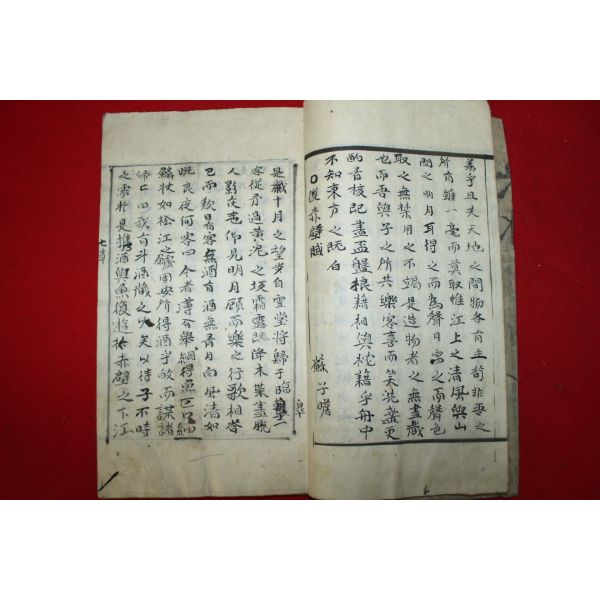 羨乎且夫天地之間物各有主苟非吾之
所有雖一毫而莫取惟江上之清風與山
間之明月耳得之而爲聲目寓之而聲色
取之無禁用之不竭是造物者之無盡藏
也而吾與子之所共樂客喜而笑洗盞更
酌肴核旣盡盃盤狼藉相與枕藉乎舟中
不知東方之旣白
○後赤壁賦 蘇子瞻
是歲十月之望步自雪堂將歸于臨皐二
皐
客從予過黃泥之坂霜露旣降木葉盡脫
人影在地仰見明月顧而樂之行歌相答
已而歎曰有客無酒有酒無肴月白風清如
此良夜何客曰今者薄擧網得魚巨口細
鱗狀如松江之鱸固安所得酒乎而謀諸
婦曰我有斗酒藏之久矣以待子不時
之需於是携酒與魚復遊於赤壁之下江